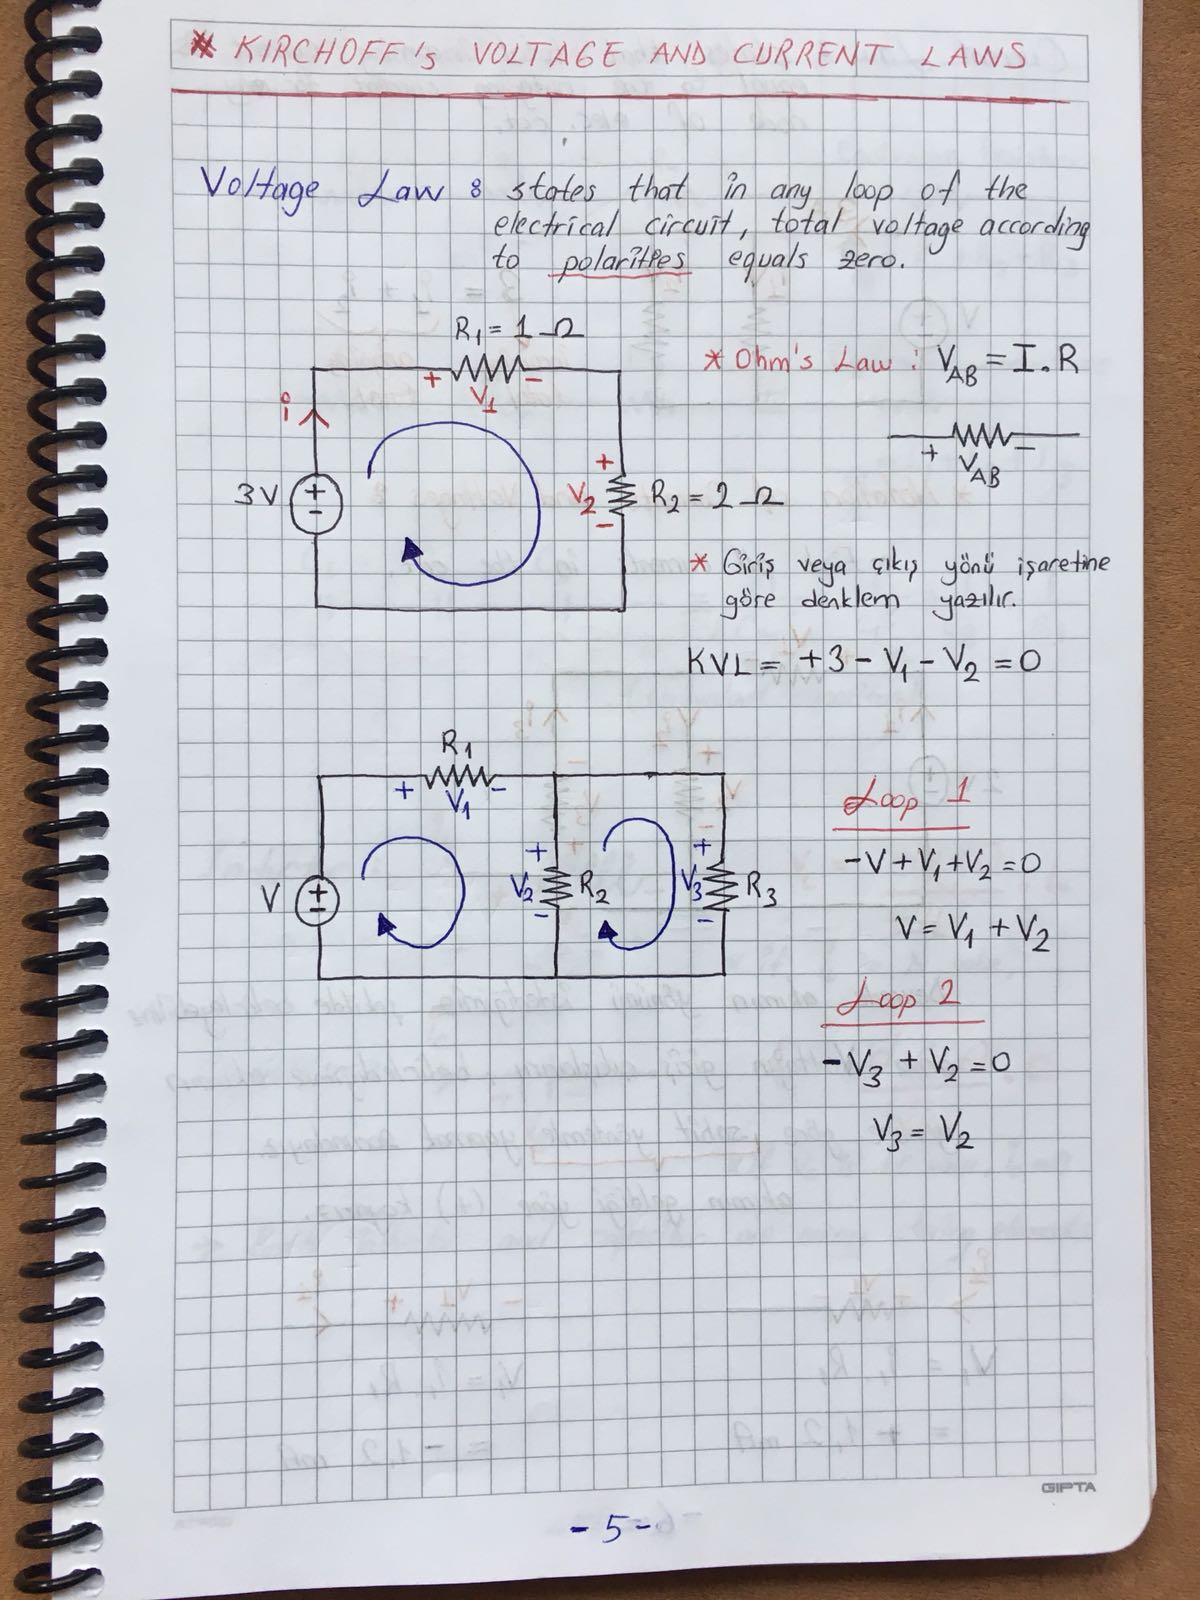 * KIRCHOFF's VOLTAGE AND CURRENT LAWS
Voltage Law : states that in any loop of the
electrical circuit, total voltage according
to polarities equals zero.
R1 = 1 Ω
+ V1 -
i
3V
+
-
+
V2
-
R2 = 2 Ω
* Ohm's Law : VAB = I.R
+ VAB -
* Giriş veya çıkış yönü işaretine
göre denklem yazılır.
KVL = +3 - V1 - V2 = 0
R1
+ V1 -
V
+
-
+
V2
-
R2
+
V3
-
R3
Loop 1
-V + V1 + V2 = 0
V = V1 + V2
Loop 2
-V3 + V2 = 0
V3 = V2
GIPTA
- 5 -